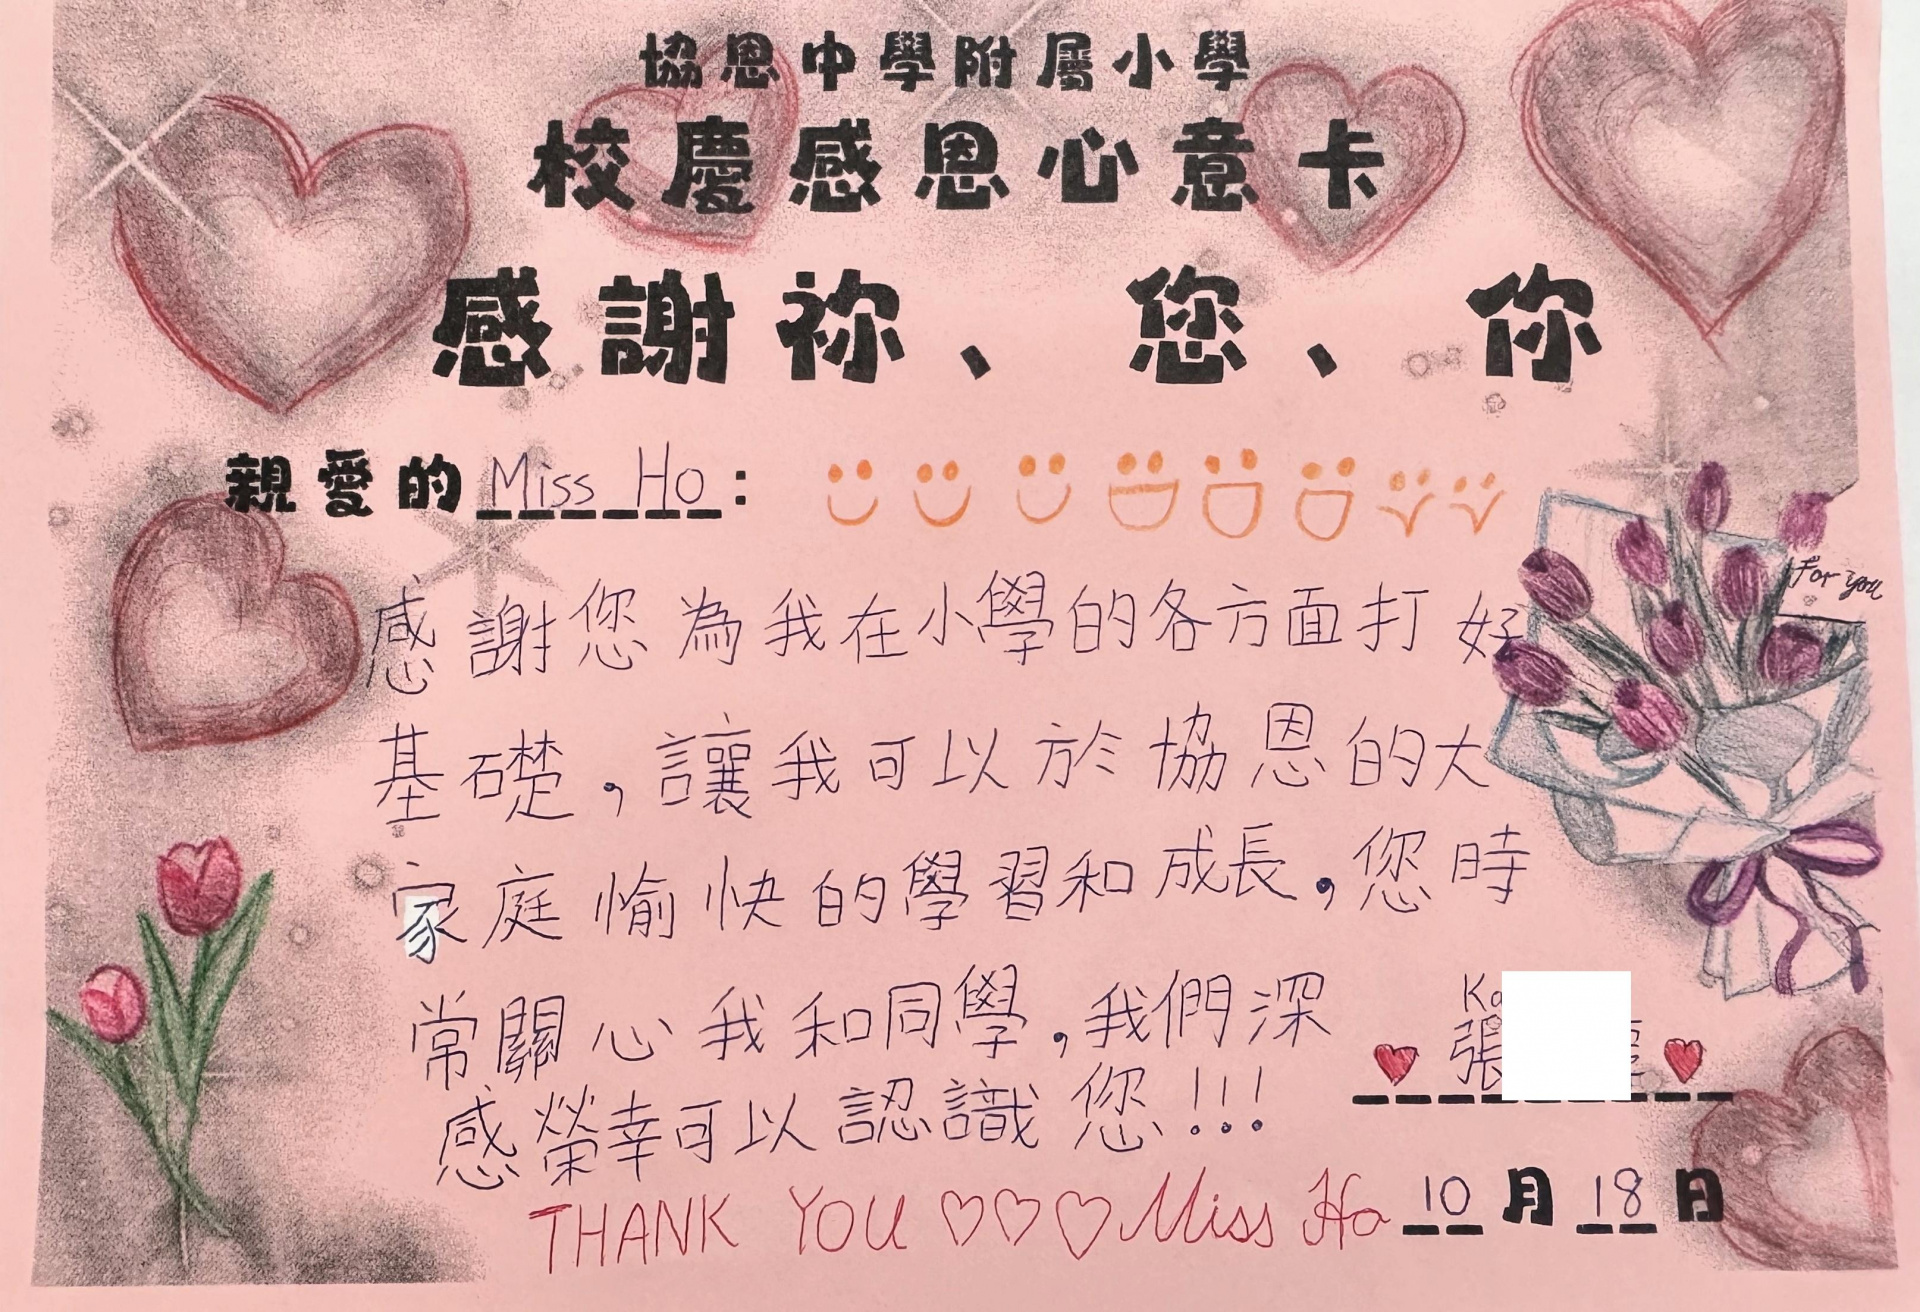 協恩中學附屬小學
校慶感恩心意卡
感謝祢、您、你
親愛的 Miss Ho：
for you
感謝您為我在小學的各方面打好
基礎，讓我可以於協恩的大
家庭愉快的學習和成長，您時
常關心我和同學，我們深
感榮幸可以認識您!!!
張
THANK YOU ♡♡♡ Miss Ho
10月18日